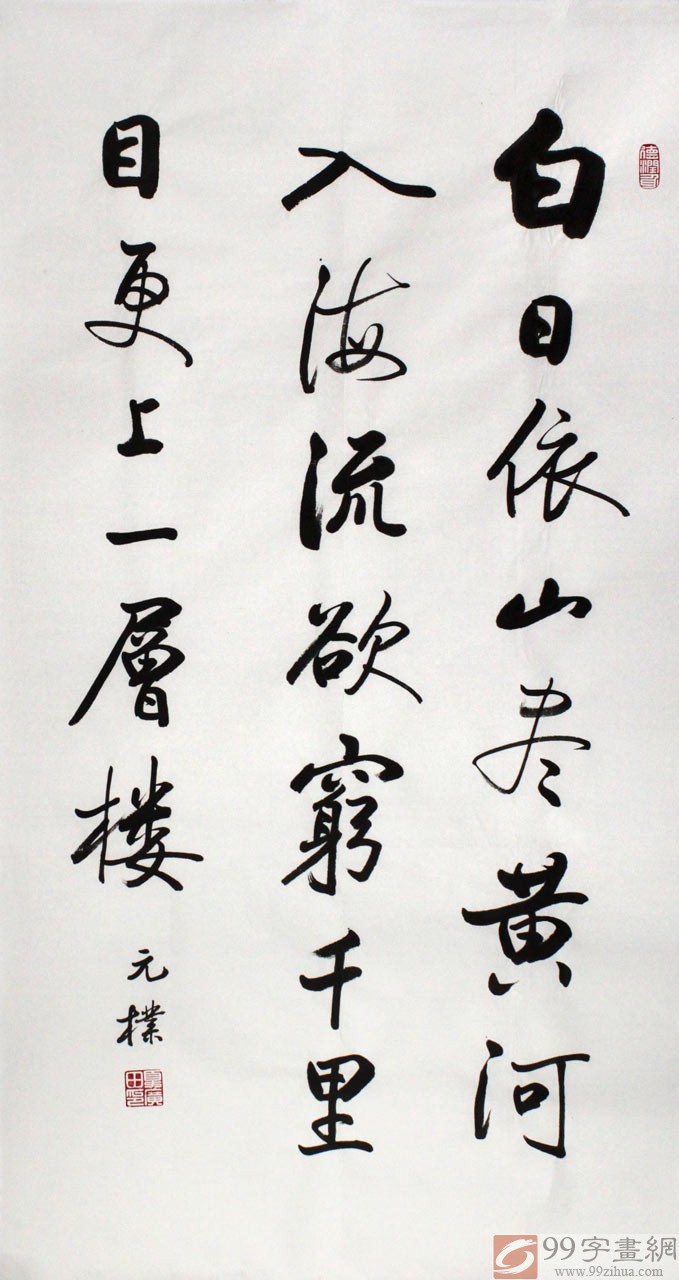 白日依山尽黄河
入海流欲窮千里
目更上一層楼
元樸
99字畫網
www.99zihua.com